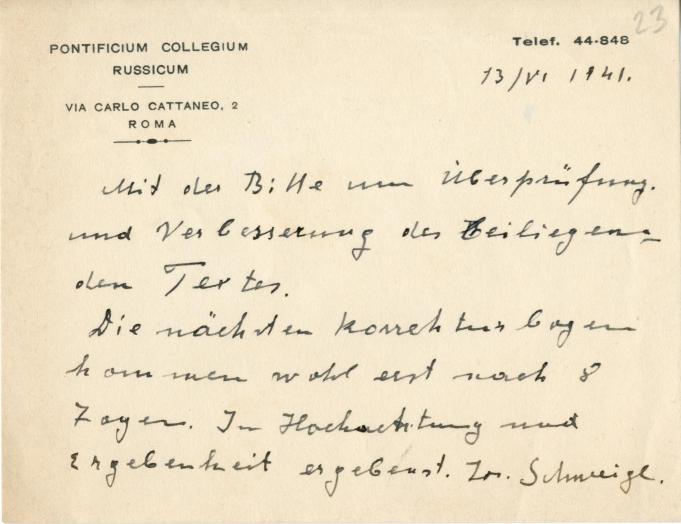 23
PONTIFICIUM COLLEGIUM
RUSSICUM
VIA CARLO CATTANEO, 2
ROMA
Telef. 44-848
13/VI 1941.
Mit der Bitte um Überprüfung.
und Verbesserung des beiliegen-
den Textes.
Die nächsten Korrekturbogen
kommen wohl erst nach 8
Tagen. In Hochachtung und
Ergebenheit ergebenst. Jos. Schweigl.